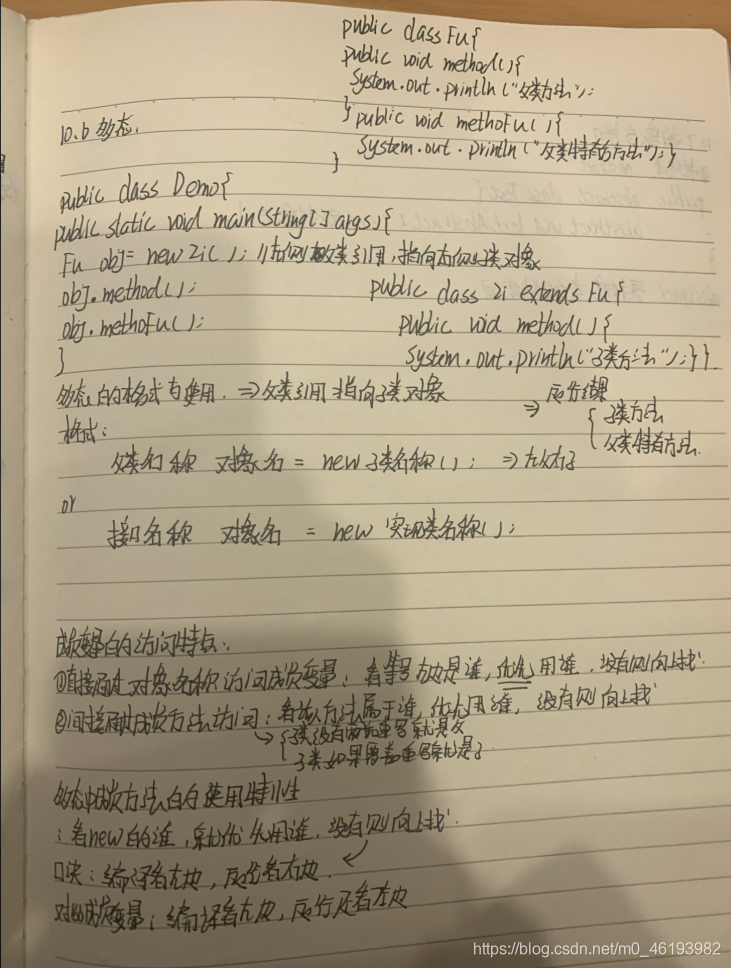 public class Fu{
public void method(){
System.out.println("父类方法");
}
public void methoFu(){
System.out.println("父类特有方法");}
}
10.6 多态.
public class Demo{
public static void main(String[] args){
Fu obj= new Zi(); //左侧父类引用,指向右侧子类对象
obj.method();
obj.methoFu();
}
public class Zi extends Fu{
public void method(){
System.out.println("子类方法");}}
多态的格式与使用. ⇒父类引用指向子类对象
⇒ 运行结果
子类方法
父类特有方法
格式:
父类名称 对象名 = new 子类名称(); ⇒左父右子
or
接口名称 对象名 = new 实现类名称();
成员变量的访问特点:
①直接通过对象名称访问成员变量: 看等号左边是谁,优先用谁,没有则向上找.
②间接通过成员方法访问: 看该方法属于谁,优先用谁, 没有则向上找
子类没有覆盖重写就是父
子类如果覆盖重写就是子
多态中成员方法的使用特性
:看new的谁,就优先用谁,没有则向上找.
口诀:编译看左边,运行看右边.
对比成员变量:编译看左边,运行还看左边
https://blog.csdn.net/m0_46193982